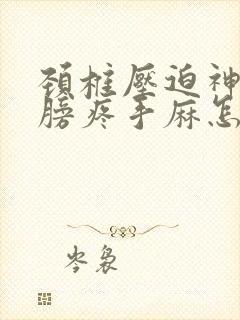 頚椎壓迫神
膀疼手麻怎
岑裊